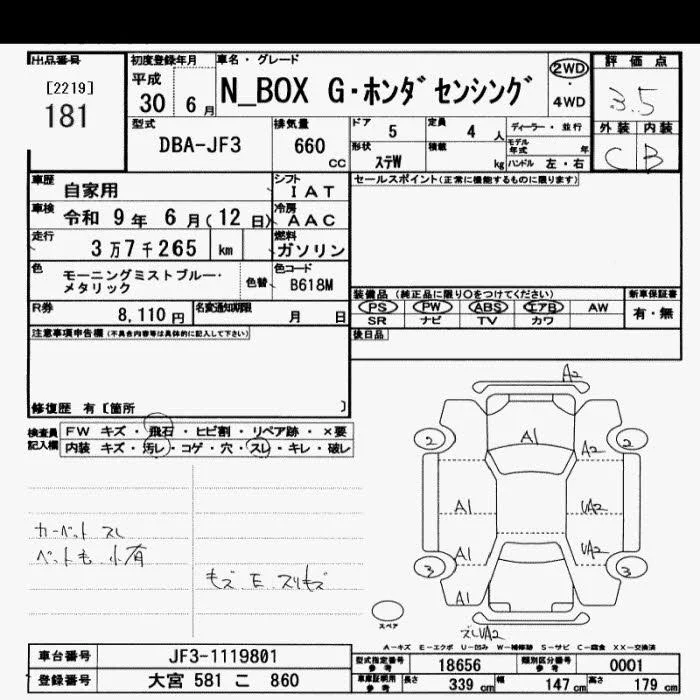 出品番号
[2219]
181
初度登録年月
平成
30 6 月
車名・グレード
N_BOX G・ホンダセンシング
2WD
・
4WD
評価点
3.5
外装 内装
C B
型式
DBA-JF3
排気量
660
cc
ドア
5
定員
4 人
形状
ステW
積載
kg
ディーラー・並行
モデル
年式 年
ハンドル 左・右
車歴
自家用
シフト
IAT
車検
令和 9 年 6 月(12 日)
冷房
AAC
走行
3万7千265 km
燃料
ガソリン
色
モーニングミストブルー・
メタリック
色替
色コード
B618M
R券
8,110 円
名変通知期限
月 日
セールスポイント(正常に機能するものに限ります)
装備品 (純正品に限り○をつけてください)
新車保証書
PS PW ABS エアB AW
有・無
SR ナビ TV カワ
後日品
注意事項申告欄 (不具合内容等は具体的に記入して下さい)
修復歴 有〔箇所 〕
検査員
記入欄
FW キズ・飛石・ヒビ割・リペア跡・×要
内装 キズ・汚レ・コゲ・穴・スレ・キレ・破レ
カーペット スレ
ペット毛 小有
A2
A1
2
2
A2
A1
UA2
A1
UA2
3
3
A1
スペア
A-キズ E-エクボ U-凹み W-補修跡 S-サビ C-腐食 XX-交換済
車台番号
JF3-1119801
登録番号
大宮 581 こ 860
型式指定番号
参考
18656
類別区分番号
参考
0001
車庫証明用
参考
長さ 339 cm 幅 147 cm 高さ 179 cm